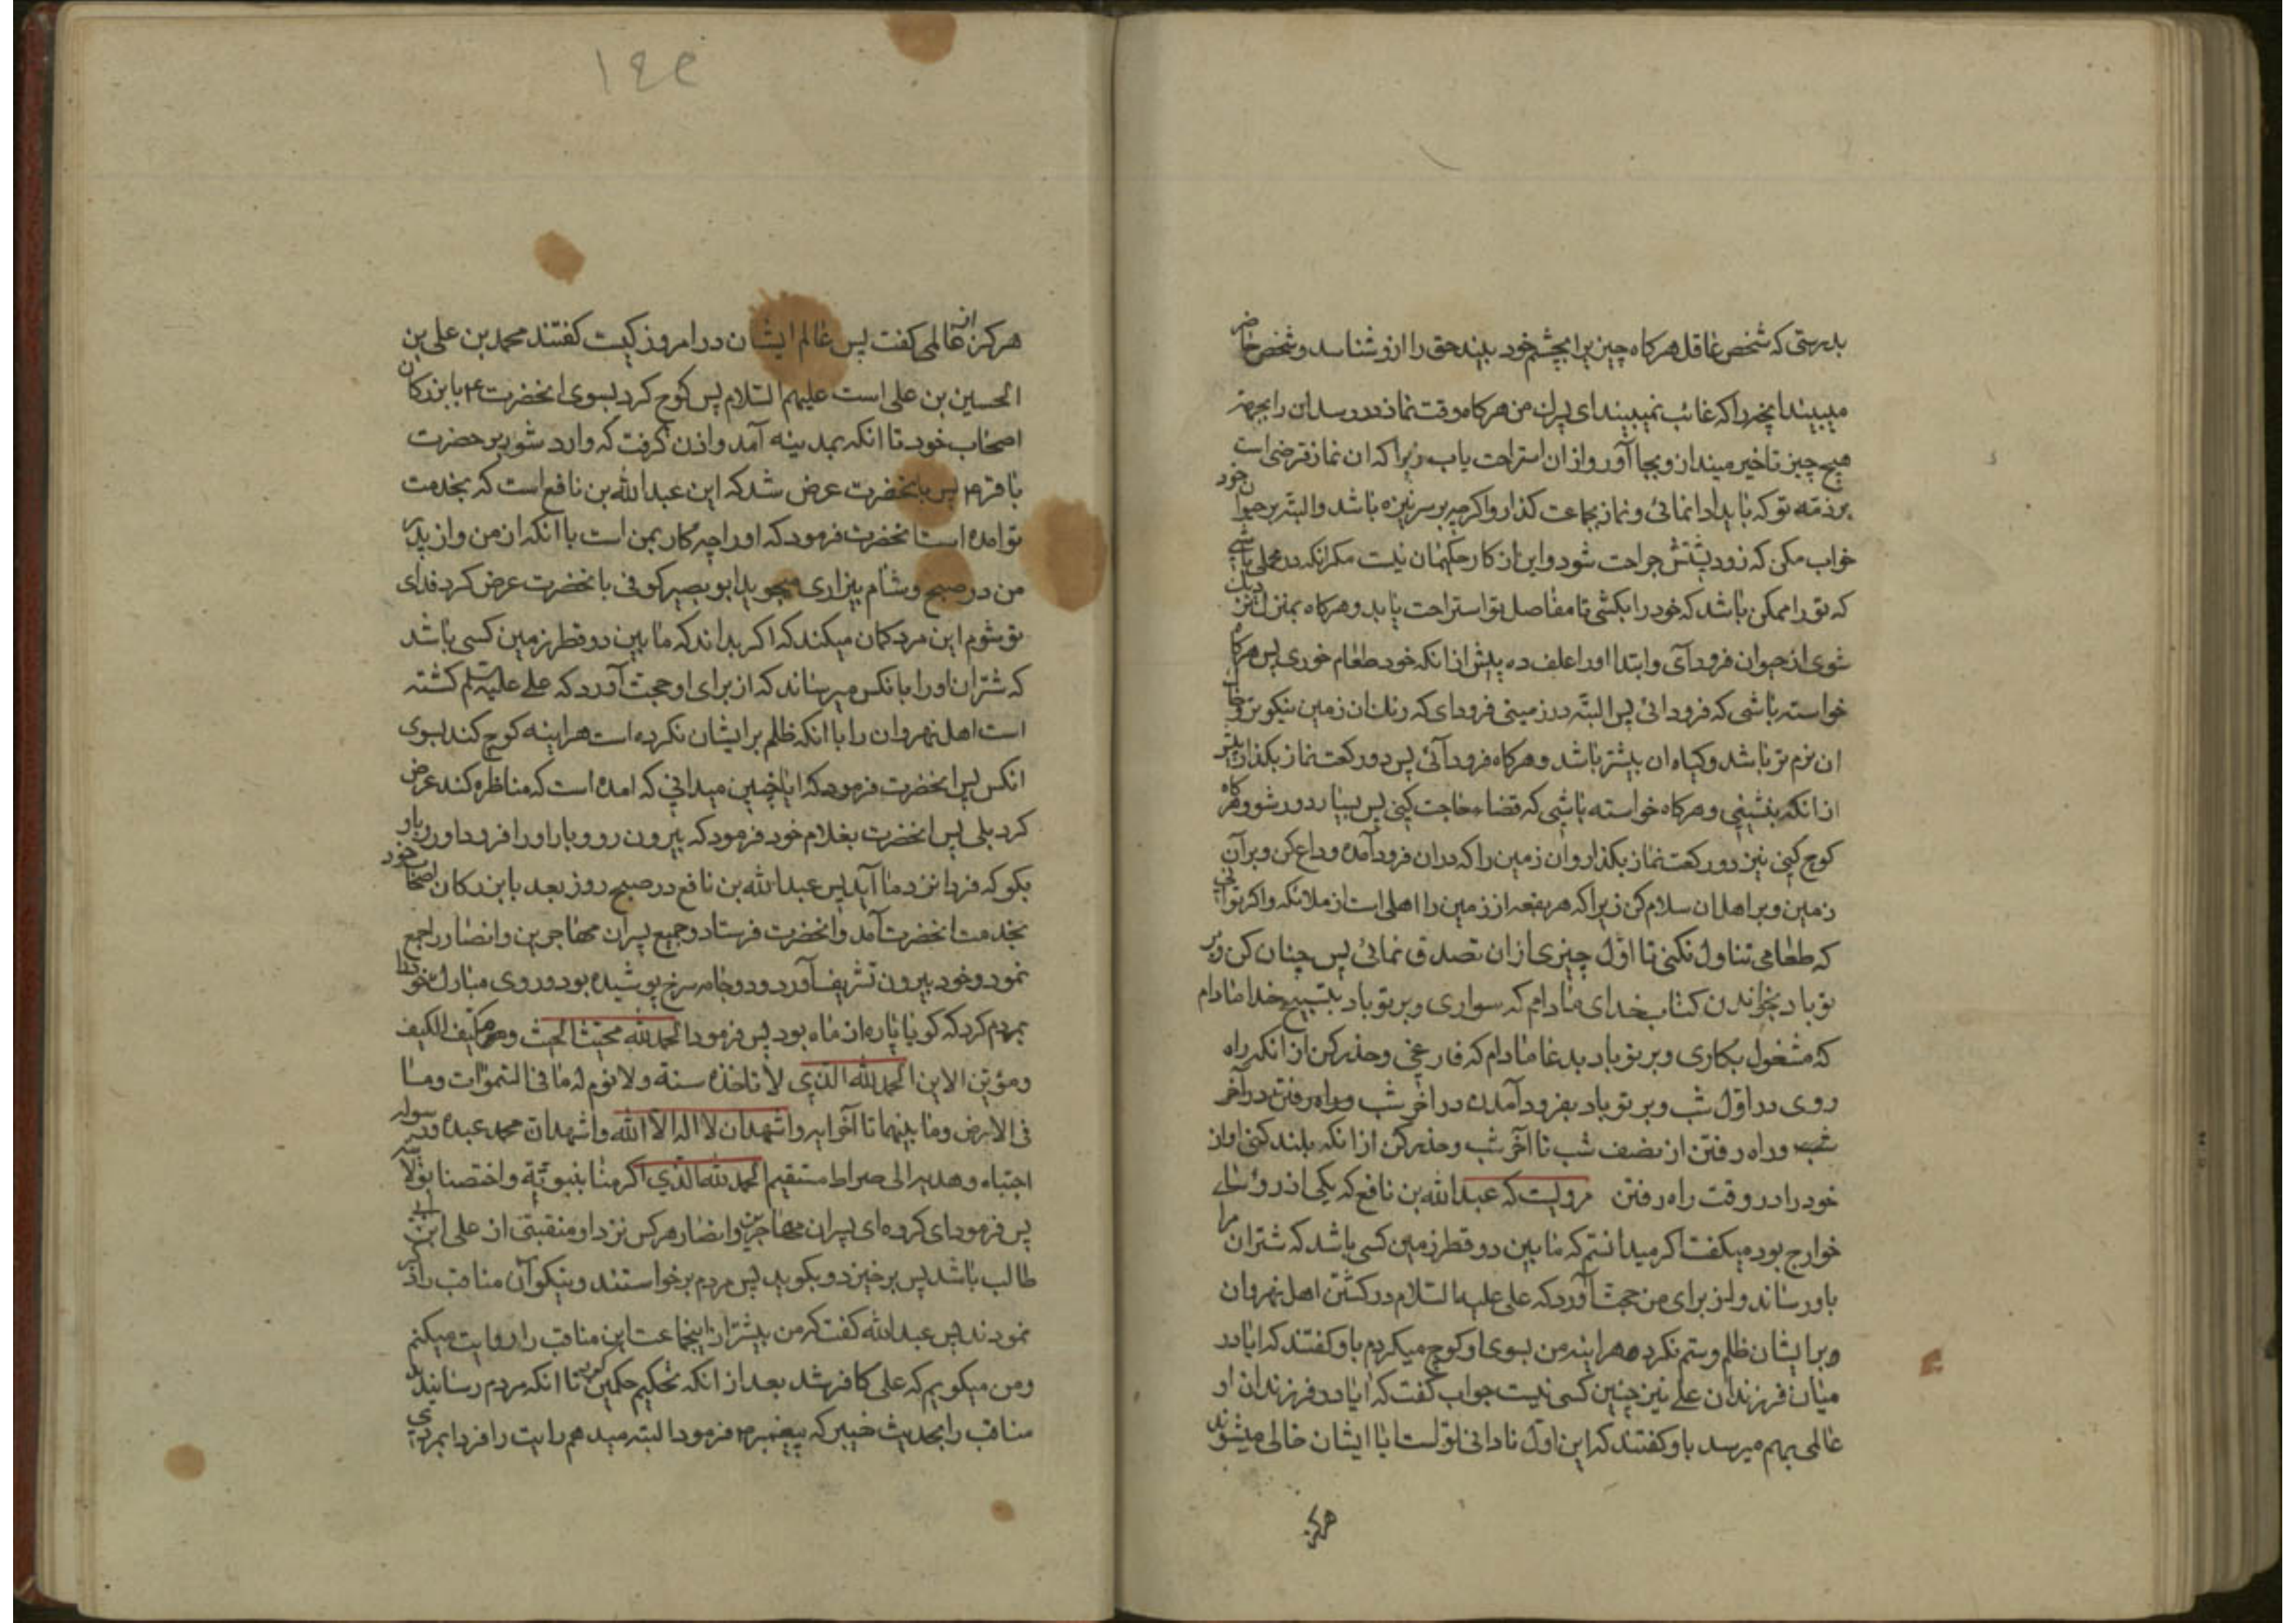 بدرستی که شخص غاقل هرکاه چیزیرا بچشم خود بیند حق را ازو شناسد و شخص حاضر
میبیند انچه را که غائب نمیبیند ای پسران من هرکاه وقت نماز در رسد ان را بجهة
هیچ چیز تاخیر مینداز و بجا آور و از ان استراحت یاب زیرا که ان نماز قرضی است
بر ذمه تو که باید ادا نمائی و نماز بجماعت کذار و اکرچه بر سر نیزه باشد و البته بر حیوان خود
خواب مکن که زود پشتش جراحت شود و این از کار حکیمان نیست مکر انکه در محملی باشی
که تو را ممکن باشد که خود را بکشی تا مفاصل تو استراحت یابد و هرکاه بمنزل نزدیک
شوی از حیوان فرود آی و ابتدا او را علف ده پیش از انکه خود طعام خوری پس هرکاه
خواسته باشی که فرود ائی پس البته در زمینی فرود ای که رنك ان زمین نیکوتر و خاك
ان نرم تر باشد و کیاه ان بیشتر باشد و هرکاه فرود آئی پس دو رکعت نماز بکذار پیش
از انکه بنشینی و هرکاه خواسته باشی که قضاء حاجت کنی پس بسیار دور شو و هرکاه
کوچ کنی نیز دو رکعت نماز بکذار و ان زمین را که در ان فرود آمده وداع کن و بر آن
زمین و بر اهل ان سلام کن زیرا که هر بقعه از زمین را اهلی است از ملائکه و اکر توانی
که طعامی تناول نکنی تا اوّل چیزی از ان تصدق نمائی پس چنان کن و بر
تو باد بخواندن کتاب خدای مادام که سواری و بر تو باد بتسبیح خدا مادام
که مشغول بکاری و بر تو باد بدعا مادام که فارغی و حذر کن از انکه راه
روی در اوّل شب و بر تو باد بفرود آمدن در اخر شب و راه رفتن در آخر
شب و راه رفتن از نصف شب تا آخر شب و حذر کن از انکه بلند کنی اواز
خود را در وقت راه رفتن مرویست که عبدالله بن نافع که یکی از رؤسای
خوارج بود میکفت اکر میدانستم که مابین دو قطر زمین کسی باشد که شتران مرا
باو رساند و از برای من حجت آورد که علی علیه السلام در کشتن اهل نهروان
و بر ایشان ظلم و ستم نکرده هراینه من بسوی او کوچ میکردم باو کفتند که ایا در
میان فرزندان علی نیز چنین کسی نیست جواب کفت که ایا در فرزندان او
عالمی بهم میرسد باو کفتند که این اوّل نادانی تو است ایا ایشان خالی میشوند
هرکز
۱۴۵
هرکز از عالمی کفت پس عالم ایشان در امروز کیست کفتند محمد بن علی بن
الحسین بن علی است علیهم السلام پس کوچ کرد بسوی انحضرت ع با بزرکان
اصحاب خود تا انکه بمدینه آمد و اذن کرفت که وارد شود بر حضرت
باقر ع پس بانحضرت عرض شد که این عبدالله بن نافع است که بخدمت
تو امده است انحضرت فرمود که او را چه کار بمن است با انکه از من و از پدر
من در صبح و شام بیزاری میجوید ابو بصیر کوفی بانحضرت عرض کرد فدای
تو شوم این مرد کمان میکند که اکر بداند که مابین دو قطر زمین کسی باشد
که شتران او را بانکس میرساند که از برای او حجت آورد که علی علیه السلم کشته
است اهل نهروان را با انکه ظلم بر ایشان نکرده است هراینه کوچ کند بسوی
انکس پس انحضرت فرمود که ایا چنین میدانی که امده است که مناظره کند عرض
کرد بلی پس انحضرت بغلام خود فرمود که بیرون رو و بار او را فرود اور و باو
بکو که فردا نزد ما آید پس عبدالله بن نافع در صبح روز بعد با بزرکان اصحاب خود
بخدمت انحضرت آمد و انحضرت فرستاد و جمیع پسران مهاجرین و انصار را جمع
نمود و خود بیرون تشریف آورد و دو جامه سرخ پوشیده بود و روی مبارك خود را
بمردم کرد که کویا پاره از ماه بود پس فرمود الحمد لله محیث الحیث و مکیف الکیف
و مؤین الاین الحمد لله الذی لا تاخذه سنة ولا نوم له ما فی السموات وما
فی الارض وما بینهما تا آخر ایه و اشهد ان لا اله الا الله و اشهد ان محمد عبده و رسوله
اجتباه و هدیه الی صراط مستقیم الحمد لله الذی اکرمنا بنبوته و اختصنا بولایته
پس فرمود ای کروه ای پسران مهاجرین و انصار هرکس نزد او منقبتی از علی ابن ابی
طالب باشد پس برخیزد و بکوید پس مردم برخواستند و نیکو آن مناقب را ذکر
نمودند پس عبدالله کفت که من بیشتر از اینجماعت این مناقب را روایت میکنم
و من میکویم که علی کافر شد بعد از انکه تحکیم حکمین کرد تا انکه مردم رسانیدند
مناقب را بحدیث خیبر که پیغمبر ص فرمود البته میدهم رایت را فردا بمردی